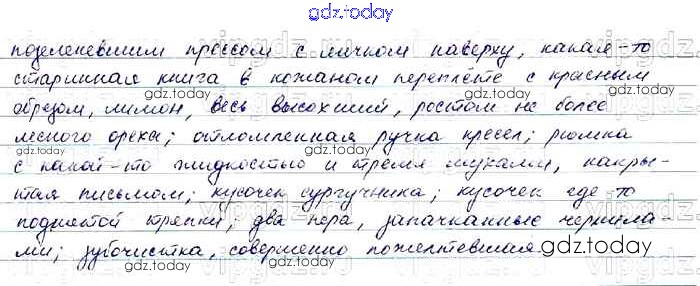 gdz.today
позеленевшим прессом с яичком наверху, какая-то
старинная книга в кожаном переплёте с красным
обрезом, лимон, весь высохший, ростом не более
лесного ореха; отломленная ручка кресел; рюмка
с какой-то жидкостью и тремя мухами, накры-
тая письмом; кусочек сургучника; кусочек где-то
поднятой тряпки; два пера, запачканные чернила-
ми; зубочистка, совершенно пожелтевшая
gdz.today